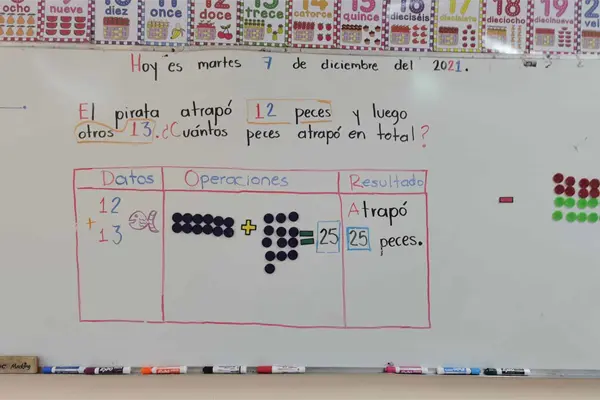 ocho nueve diez once doce trece catorce quince dieciséis diecisiete dieciocho diecinueve
Hoy es martes 7 de diciembre del 2021.
El pirata atrapó 12 peces y luego
otros 13. ¿Cuántos peces atrapó en total?
Datos Operaciones Resultado
12 Atrapó
+
13 + = 25 25 peces.
-